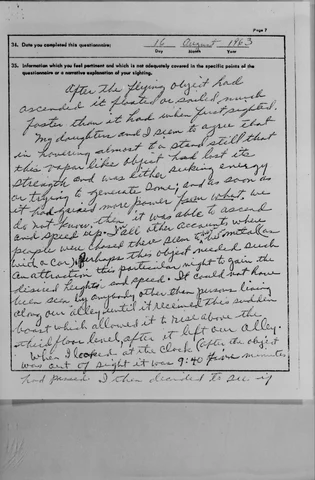 Page 7
34. Date you completed this questionnaire: 16 August 1963
Day Month Year
35. Information which you feel pertinent and which is not adequately covered in the specific points of the
questionnaire or a narrative explanation of your sighting.
After the flying object had
ascended it floated or sailed much
faster than it had when first sighted.
My daughter and I seem to agree that
in hovering almost to a stand still that
this vapor like object had lost its
strength and was either seeking energy
or trying to generate some, and as soon as
it had gained more power from what we
do not know, then it was able to ascend
and speed up. I all other accounts where
people were chased there seem
with a car). Perhaps this object needed such
an attraction this particular night to gain the
desired height and speed. It could not have
been seen by anybody other than persons living
along our alley until it received this sudden
boost which allowed it to rise above the
third floor level, after it left our alley.
When I looked at the clock (after the object
was out of sight it was 9:40 five minutes
had passed I then decided to see if